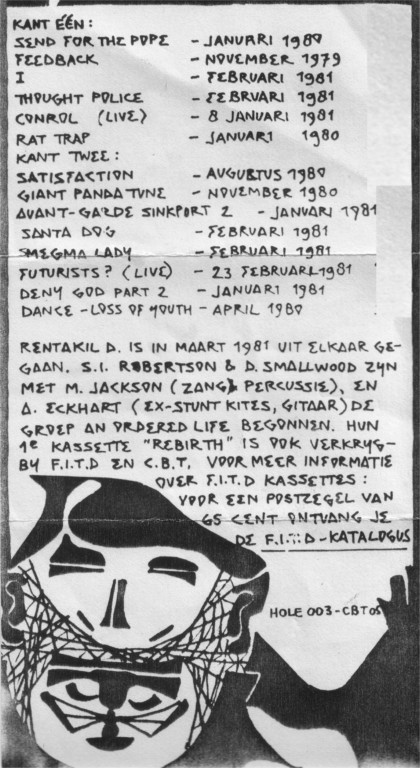 KANT ÉÉN:
SEND FOR THE POPE - JANUARI 1980
FEEDBACK - NOVEMBER 1979
I - FEBRUARI 1981
THOUGHT POLICE - FEBRUARI 1981
CONROL (LIVE) - 8 JANUARI 1981
RAT TRAP - JANUARI 1980
KANT TWEE:
SATISFACTION - AUGUSTUS 1980
GIANT PANDA TUNE - NOVEMBER 1980
AVANT-GARDE SINKPORT 2 - JANUARI 1981
SANTA DOG - FEBRUARI 1981
SMEGMA LADY - FEBRUARI 1981
FUTURISTS? (LIVE) - 23 FEBRUARI 1981
DENY GOD PART 2 - JANUARI 1981
DANCE - LOSS OF YOUTH - APRIL 1980
RENTAKIL D. IS IN MAART 1981 UIT ELKAAR GE-
GAAN. S.I. ROBERTSON & D. SMALLWOOD ZYN
MET M. JACKSON (ZANG, PERCUSSIE), EN
A. ECKHART (EX-STUNT KITES, GITAAR) DE
GROEP AN ORDERED LIFE BEGONNEN. HUN
1e KASSETTE "REBIRTH" IS OOK VERKRYG-
BY F.I.T.D EN C.B.T. VOOR MEER INFORMATIE
OVER F.I.T.D KASSETTES:
VOOR EEN POSTZEGEL VAN
65 CENT ONTVANG JE
DE F.I.T.D-KATALOGUS
HOLE 003-CBT05